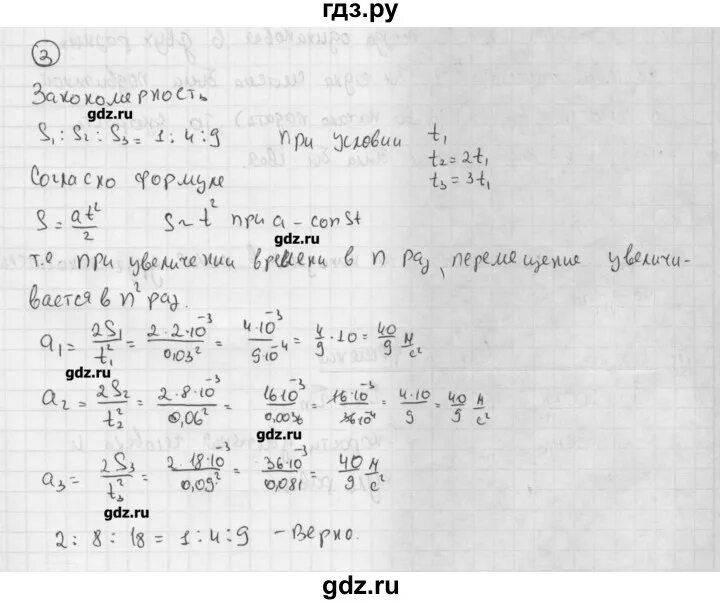 гдз.ру
③
Закономерность
gdz.ru
S₁ : S₂ : S₃ = 1 : 4 : 9 при условии t₁
t₂ = 2t₁
t₃ = 3t₁
Согласно формуле
S = at²/2 S ~ t² при a - const
gdz.ru
т.е при увеличении времени в n раз, перемещение увеличи-
вается в n² раз.
a₁ = 2S₁/t₁² = 2·2·10⁻³/0,03² = 4·10⁻³/9·10⁻⁴ = 4/9 · 10 = 40/9 м/с²
gdz.ru
a₂ = 2S₂/t₂² = 2·8·10⁻³/0,06² = 16·10⁻³/0,0036 = 16·10⁻³/36·10⁻⁴ = 4·10/9 = 40/9 м/с²
gdz.ru
a₃ = 2S₃/t₃² = 2·18·10⁻³/0,09² = 36·10⁻³/0,081 = 40/9 м/с²
gdz.ru
2 : 8 : 18 = 1 : 4 : 9 - Верно.
gdz.ru